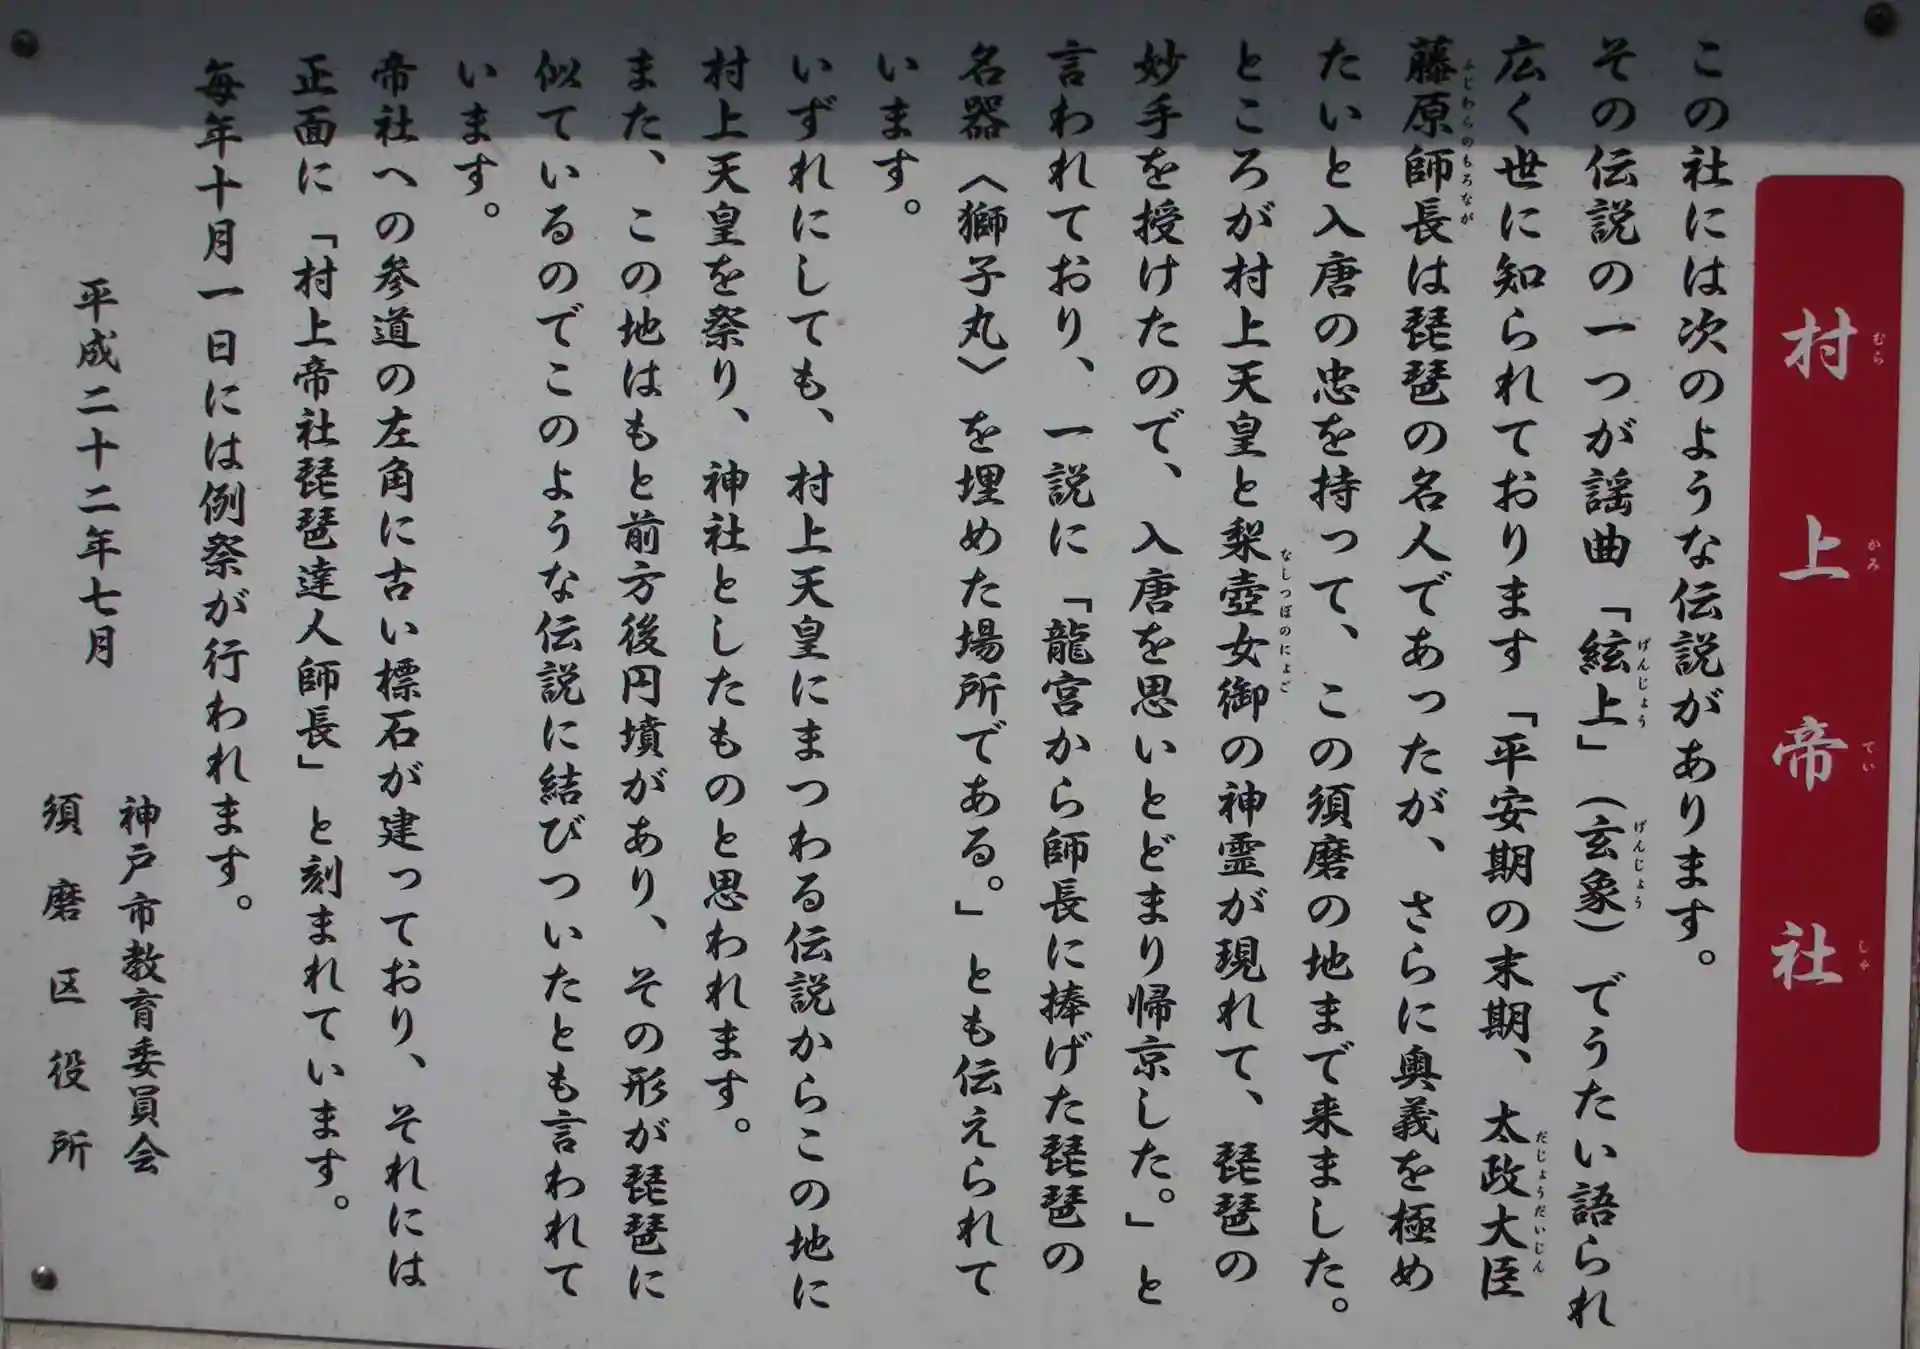 村上帝社
むらかみていしゃ
この社には次のような伝説があります。
その伝説の一つが謡曲「絃上」（玄象）でうたい語られ
げんじょう げんじょう
広く世に知られております「平安期の末期、太政大臣
だじょうだいじん
藤原師長は琵琶の名人であったが、さらに奥義を極め
ふじわらのもろなが
たいと入唐の忠を持って、この須磨の地まで来ました。
ところが村上天皇と梨壺女御の神霊が現れて、琵琶の
なしつぼのにょご
妙手を授けたので、入唐を思いとどまり帰京した。」と
言われており、一説に「龍宮から師長に捧げた琵琶の
名器〈獅子丸〉を埋めた場所である。」とも伝えられて
います。
いずれにしても、村上天皇にまつわる伝説からこの地に
村上天皇を祭り、神社としたものと思われます。
また、この地はもと前方後円墳があり、その形が琵琶に
似ているのでこのような伝説に結びついたとも言われて
います。
帝社への参道の左角に古い標石が建っており、それには
正面に「村上帝社琵琶達人師長」と刻まれています。
毎年十月一日には例祭が行われます。
平成二十二年七月
神戸市教育委員会
須磨区役所